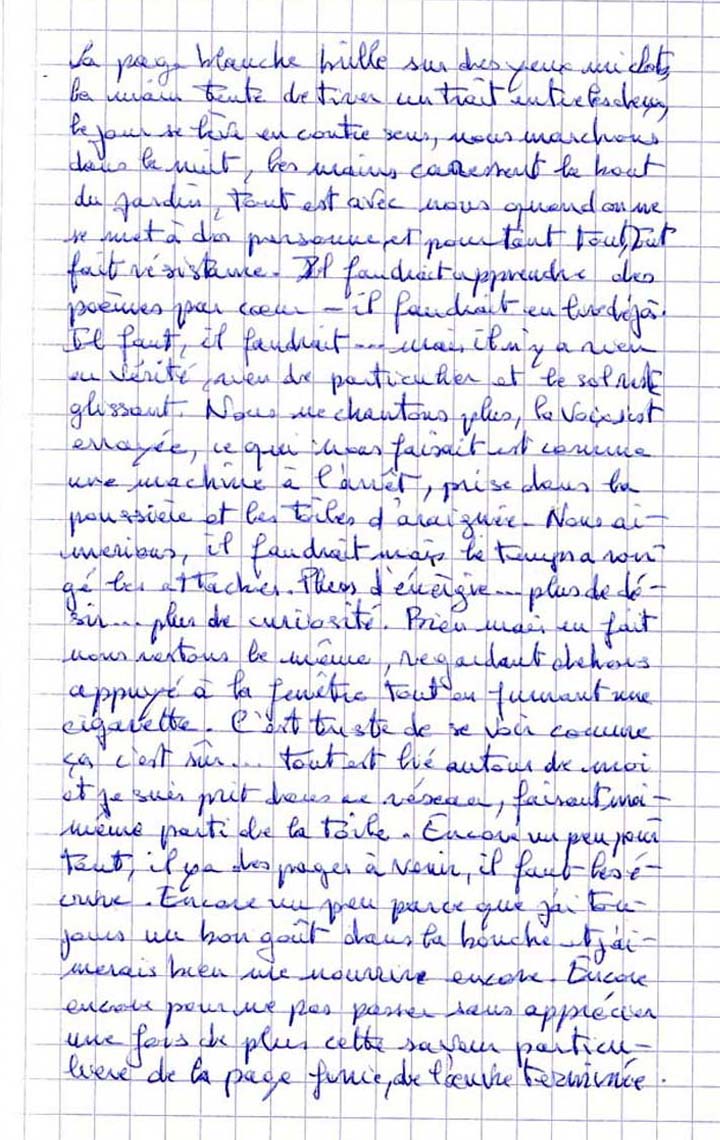 La page blanche brille sur des yeux mi clots,
la main tente de tirer un trait entre les deux,
le jour se lève en contre sens, nous marchons
dans la nuit, les mains caressent le bout
du jardin, tout est avec nous quand on ne
se met à dos personne, et pourtant tout, tout
fait résistance. Il faudrait apprendre des
poèmes par cœur – il faudrait en lire déjà.
Il faut, il faudrait ... mais il n'y a rien
en vérité, rien de particulier et le sol reste
glissant. Nous ne chantons plus, la voix est
enrayée, ce qui nous faisait est comme
une machine à l'arrêt, prise dans la
poussière et les toiles d'araignée. Nous ai-
merions, il faudrait mais le temps a ron-
gé les attaches. Plus d'énergie ... plus de dé-
sir ... plus de curiosité. Bien mais en fait
nous restons le même, regardant dehors
appuyé à la fenêtre tout en fumant une
cigarette. C'est triste de se voir comme
ça c'est sûr ... tout est lié autour de moi
et je suis prit dans ce réseau, faisant moi-
même parti de la toile. Encore un peu pour
tant, il y a des pages à venir, il faut les é-
crire. Encore un peu parce que j'ai tou-
jours un bon goût dans la bouche et j'ai-
merais bien me nourrire encore. Encore
encore pour ne pas passer sans apprécier
une fois de plus cette saveur particu-
lière de la page finie, de l'œuvre terminée.